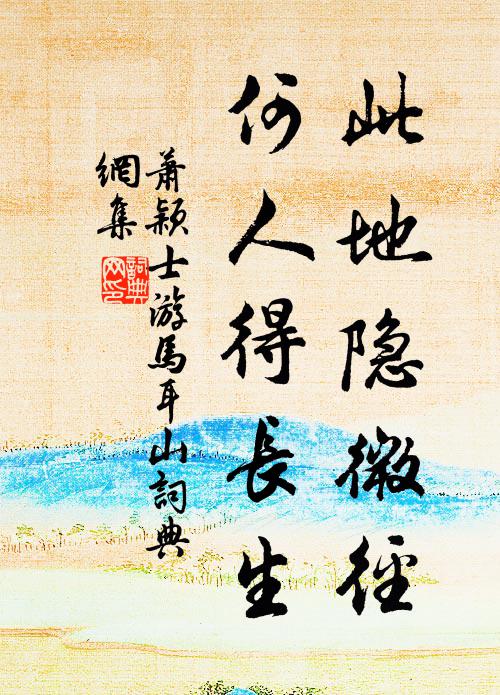 此地隐微径
何人得長生
蕭穎士游馬耳山詞典
網集
詞典
网印